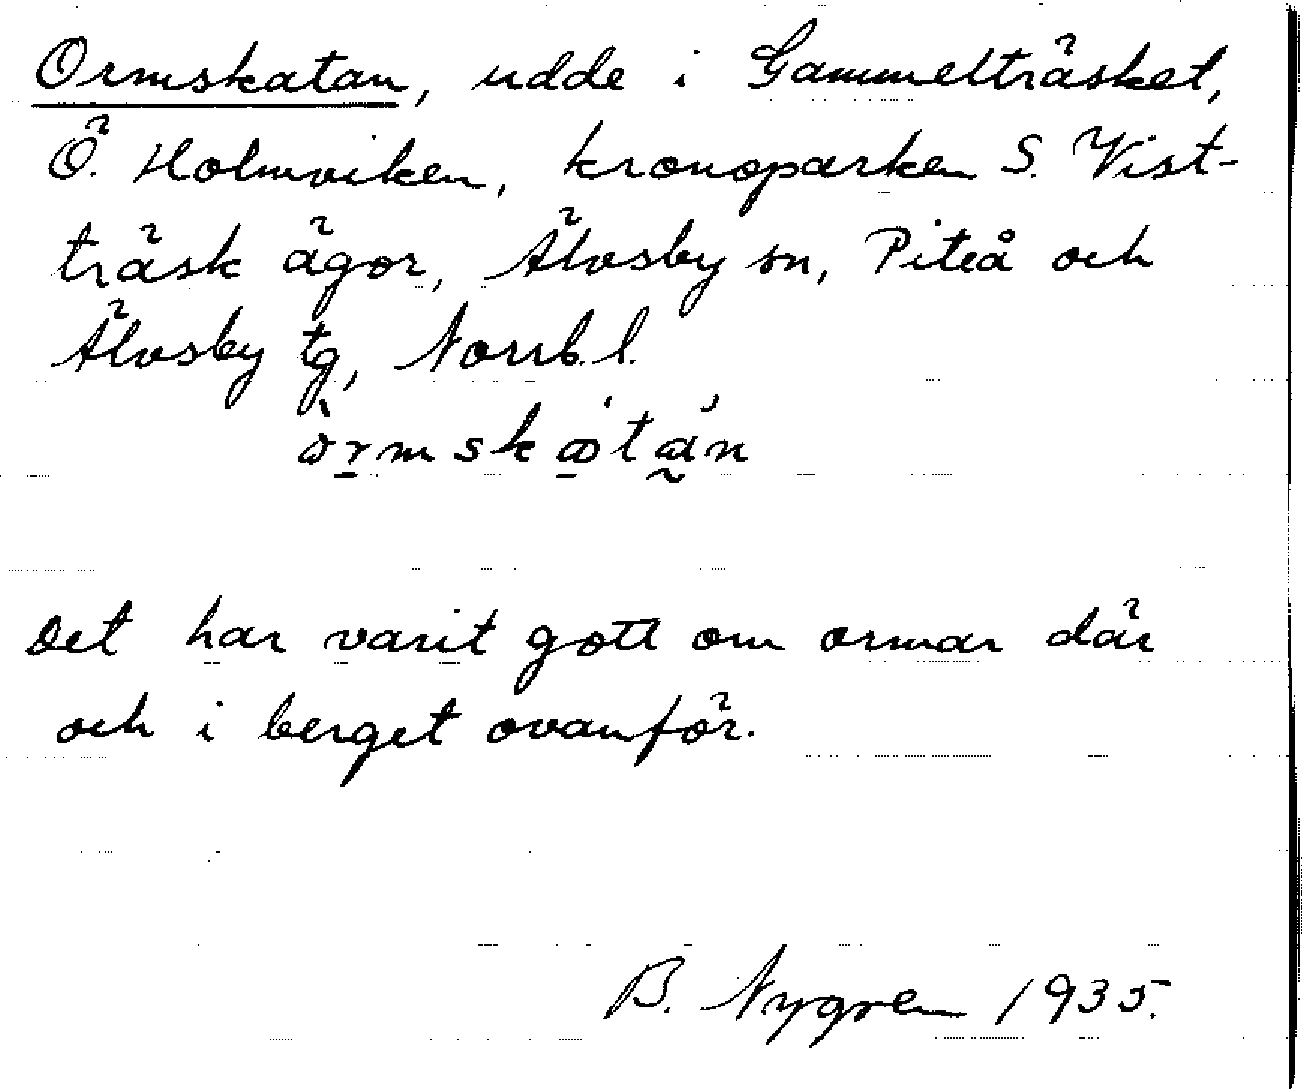 Ormskatan, udde i Gammelträsket,
Ö. Holmviken, kronoparken S. Vist-
träsk ägor, Älvsby sn, Piteå och
Älvsby tg, Norrb. l.
Det har varit gott om ormar där
och i berget ovanför.
B. Nygren 1935.